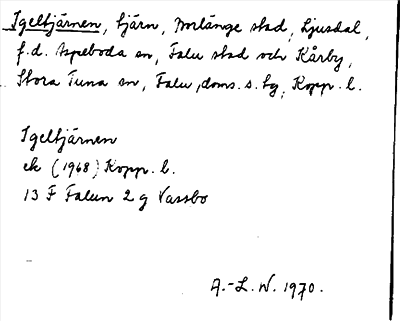 Igeltjärnen, tjärn, Borlänge stad, Ljusdal,
f.d. Aspeboda sn, Falu stad och Kårby,
Stora Tuna sn, Falu doms. s. lg, Kopp. l.
Igeltjärnen
ek (1968) Kopp. l.
13 F Falun 2 g Vassbo
A.-L. W. 1970.